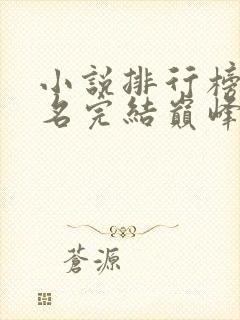 小說排行榜
名完結巔峰
蒼源